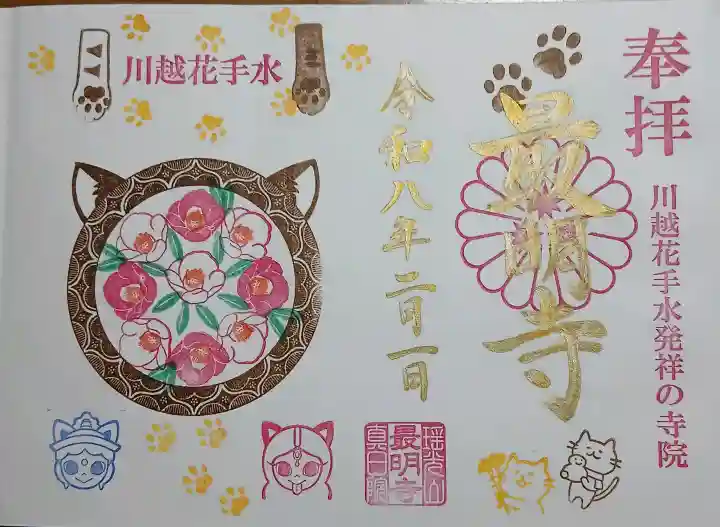 奉拝
川越花手水発祥の寺院
最明寺
令和八年二月一日
川越花手水
瑶光山
最明寺
真日院